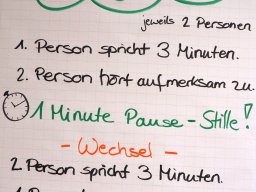 jeweils 2 Personen
1. Person spricht 3 Minuten.
2. Person hört aufmerksam zu.
1 Minute Pause - Stille!
- Wechsel -
2. Person spricht 3 Minuten.